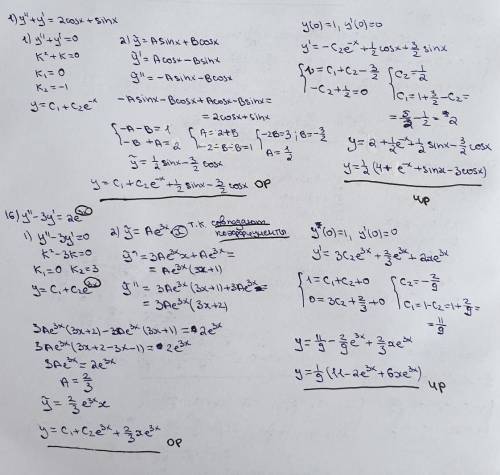 1) y''+y' = 2cosx + sinx
1) y''+y'=0
K²+K=0
K₁=0
K₂=-1
y=C₁+C₂e⁻ˣ
2) ỹ=Asinx+Bcosx
ỹ'=Acosx-Bsinx
ỹ''=-Asinx-Bcosx
-Asinx-Bcosx+Acosx-Bsinx=
=2cosx+sinx
{-A-B=1
-B+A=2
{A=2+B
-2-B-B=1
{-2B=3; B=-3/2
A=1/2
ỹ=1/2 sinx-3/2 cosx
y=C₁+C₂e⁻ˣ+1/2 sinx-3/2 cosx ОР
y(0)=1, y'(0)=0
y'=-C₂e⁻ˣ+1/2 cosx+3/2 sinx
{1=C₁+C₂-3/2
-C₂+1/2=0
{C₂=1/2
C₁=1+3/2-C₂=
=5/2-1/2=2
y=2+1/2e⁻ˣ+1/2 sinx-3/2 cosx
y=1/2(4+e⁻ˣ+sinx-3cosx)
ЧР
16) y''-3y'=2e³ˣ
1) y''-3y'=0
K²-3K=0
K₁=0 K₂=3
y=C₁+C₂e³ˣ
2) ỹ=Ae³ˣx т.к. совпадают
коэффициенты
ỹ'=3Ae³ˣx+Ae³ˣ=
=Ae³ˣ(3x+1)
ỹ''=3Ae³ˣ(3x+1)+3Ae³ˣ=
=3Ae³ˣ(3x+2)
3Ae³ˣ(3x+2)-3Ae³ˣ(3x+1)=2e³ˣ
3Ae³ˣ(3x+2-3x-1)=2e³ˣ
3Ae³ˣ=2e³ˣ
A=2/3
ỹ=2/3e³ˣx
y=C₁+C₂e³ˣ+2/3xe³ˣ ОР
y(0)=1, y'(0)=0
y'=3C₂e³ˣ+2/3e³ˣ+2xe³ˣ
{1=C₁+C₂+0
0=3C₂+2/3+0
{C₂=-2/9
C₁=1-C₂=1+2/9=
=11/9
y=11/9-2/9e³ˣ+2/3xe³ˣ
y=1/9(11-2e³ˣ+6xe³ˣ)
ЧР